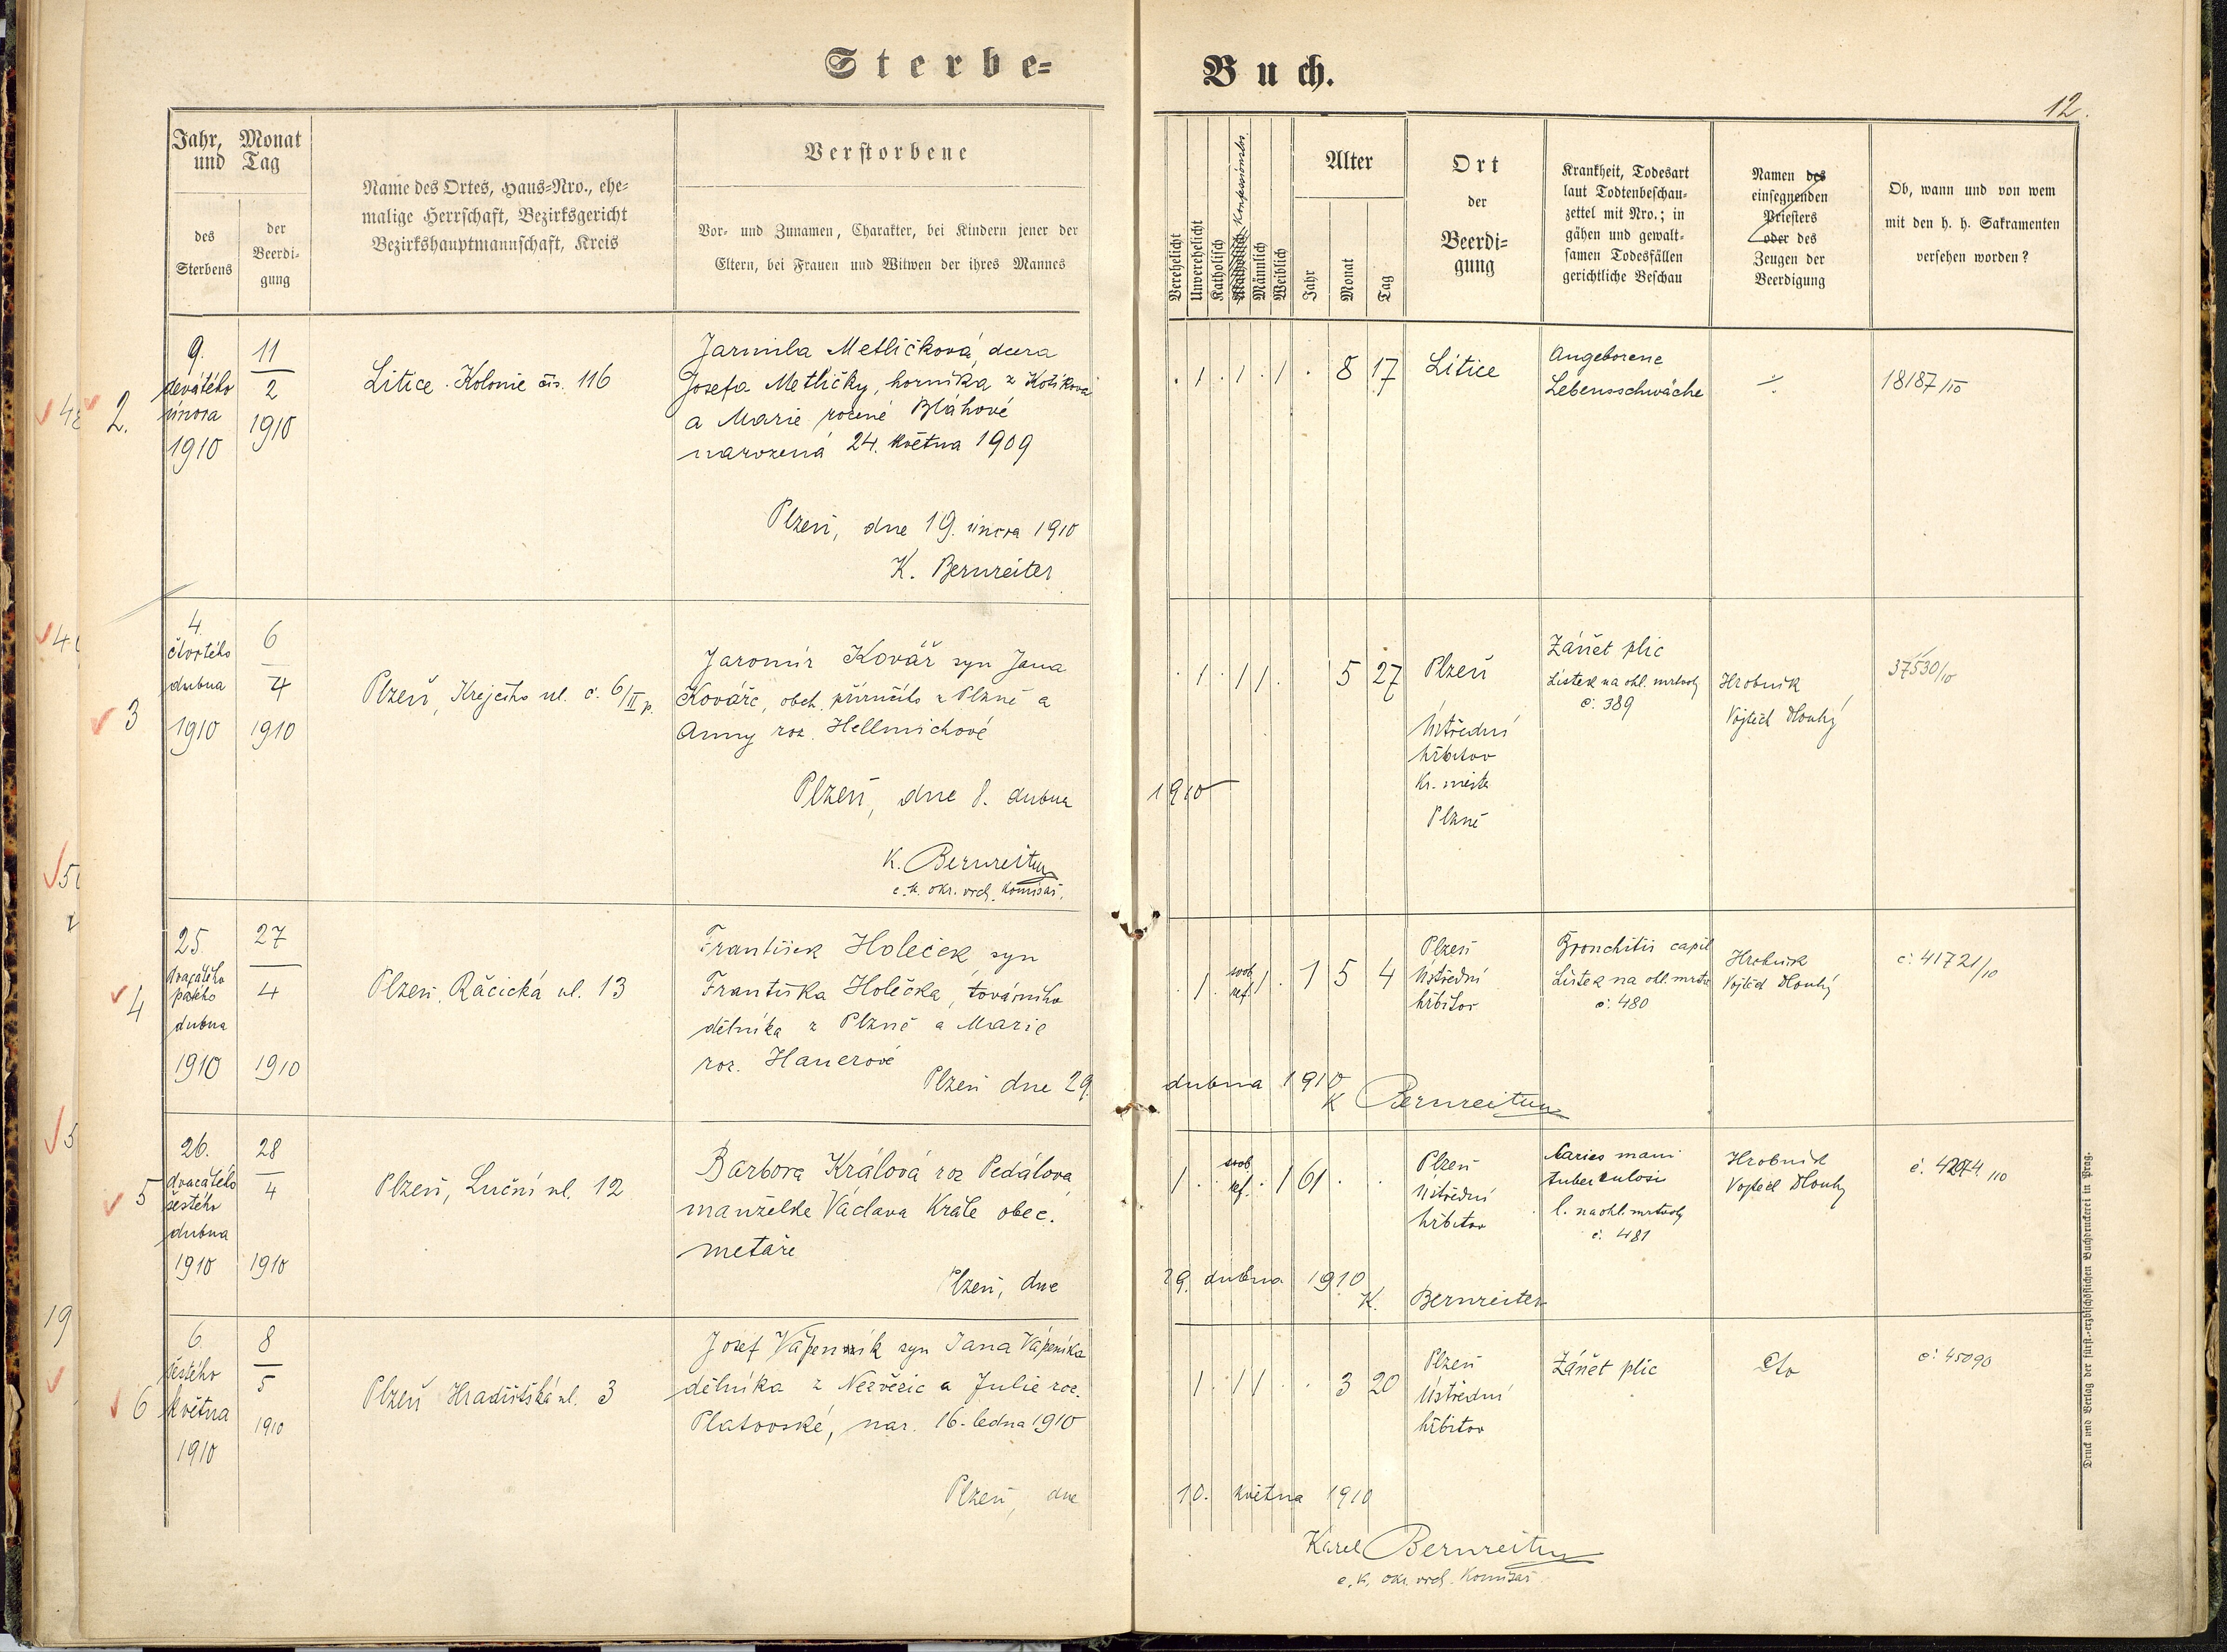 Sterbe=
Buch.
12.
Jahr, Monat
und Tag
des
Sterbens
der
Beerdi-
gung
Name des Ortes, Haus=Nro., ehe=
malige Herrschaft, Bezirksgericht
Bezirkshauptmannschaft, Kreis
Verstorbene
Vor- und Zunamen, Charakter, bei Kindern jener der
Eltern, bei Frauen und Witwen der ihres Mannes
Verehelicht
Unverehelicht
Katholisch
Konfessionslos
Männlich
Weiblich
Alter
Jahr
Monat
Tag
Ort
der
Beerdi=
gung
Krankheit, Todesart
laut Todtenbeschau-
zettel mit Nro.; in
gähen und gewalt-
samen Todesfällen
gerichtliche Beschau
Namen des
einsegnenden
Priesters
oder des
Zeugen der
Beerdigung
Ob, wann und von wem
mit den h. h. Sakramenten
versehen worden?
2.
9.
devátého
února
1910
11
2
1910
Litice. Kolonie čís. 116
Jarmila Metličková, dcera
Josefa Metličky, horníka z Kotíkova
a Marie rozené Bláhové
narozená 24. května 1909
Plzeň, dne 19. února 1910
K. Bernreiter
. 1 . 1 . 1 . 8 17
Litice
Angeborene
Lebensschwäche
18187/10
3
4.
čtvrtého
dubna
1910
6
4
1910
Plzeň, Krejčího ul. č. 6/II p.
Jaromír Kovář syn Jana
Kováře, obch. příručího z Plzně a
Anny roz. Hellmichové
Plzeň, dne 8. dubna
1910
K. Bernreiter
c. k. okr. vrch. komisař.
. 1 . 1 1 . 5 27
Plzeň
Ústřední
hřbitov
kr. města
Plzně
Zánět plic
Lístek na ohl. mrtvoly
č. 389
Hrobník
Vojtěch Dlouhý
37530/10
4
25.
dvacátého
pátého
dubna
1910
27
4
1910
Plzeň, Račická ul. 13
František Holeček syn
Františka Holečka, továrního
dělníka z Plzně a Marie
roz. Hanerové
Plzeň dne 29.
dubna 1910
K Bernreiter
. 1 . svob. ref. 1 . 1 5 4
Plzeň
Ústřední
hřbitov
Bronchitis capil
Lístek na ohl. mrtv
č. 480
Hrobník
Vojtěch Dlouhý
č. 41721/10
5
26.
dvacátého
šestého
dubna
1910
28
4
1910
Plzeň, Luční ul. 12
Barbora Králová roz Pedálová,
manželka Václava Krále obec.
metaře
Plzeň, dne
29. dubna 1910
K. Bernreiter
1 . svob. ref. . 1 61 . .
Plzeň
Ústřední
hřbitov
Caries mani
tuberculosi
l. na ohl. mrtvoly
č. 481
Hrobník
Vojtěch Dlouhý
6
6.
šestého
května
1910
8
5
1910
Plzeň Hradišťská ul. 3
Josef Vápeník syn Jana Vápeníka
dělníka z Nezvěstic a Julie roz.
Platovské, nar. 16. ledna 1910
Plzeň, dne
10. května 1910
Karel Bernreiter
c. k. okr. vrch. komisař
. 1 . 1 1 . . 3 20
Plzeň
Ústřední
hřbitov
Zánět plic
č. 45090
Druck und Verlag der fürst.-erzbischöflichen Buchdruckerei in Prag.